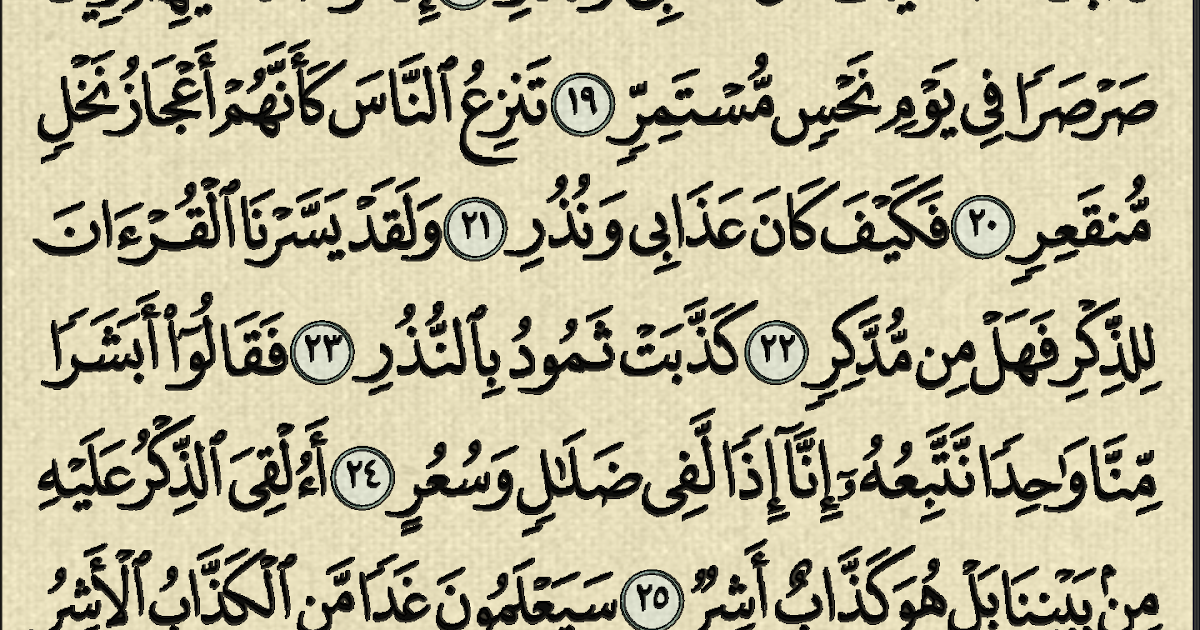 صَرْصَرًا فِى يَوْمِ نَحْسٍ مُّسْتَمِرٍّ ١٩ تَنزِعُ ٱلنَّاسَ كَأَنَّهُمْ أَعْجَازُ نَخْلٍ
مُّنقَعِرٍ ٢٠ فَكَيْفَ كَانَ عَذَابِى وَنُذُرِ ٢١ وَلَقَدْ يَسَّرْنَا ٱلْقُرْءَانَ
لِلذِّكْرِ فَهَلْ مِن مُّدَّكِرٍ ٢٢ كَذَّبَتْ ثَمُودُ بِٱلنُّذُرِ ٢٣ فَقَالُوٓا۟ أَبَشَرًا
مِّنَّا وَٰحِدًا نَّتَّبِعُهُۥٓ إِنَّآ إِذًا لَّفِى ضَلَٰلٍ وَسُعُرٍ ٢٤ أَءُلْقِىَ ٱلذِّكْرُ عَلَيْهِ
مِنۢ بَيْنِنَا بَلْ هُوَ كَذَّابٌ أَشِرٌ ٢٥ سَيَعْلَمُونَ غَدًا مَّنِ ٱلْكَذَّابُ ٱلْأَشِرُ